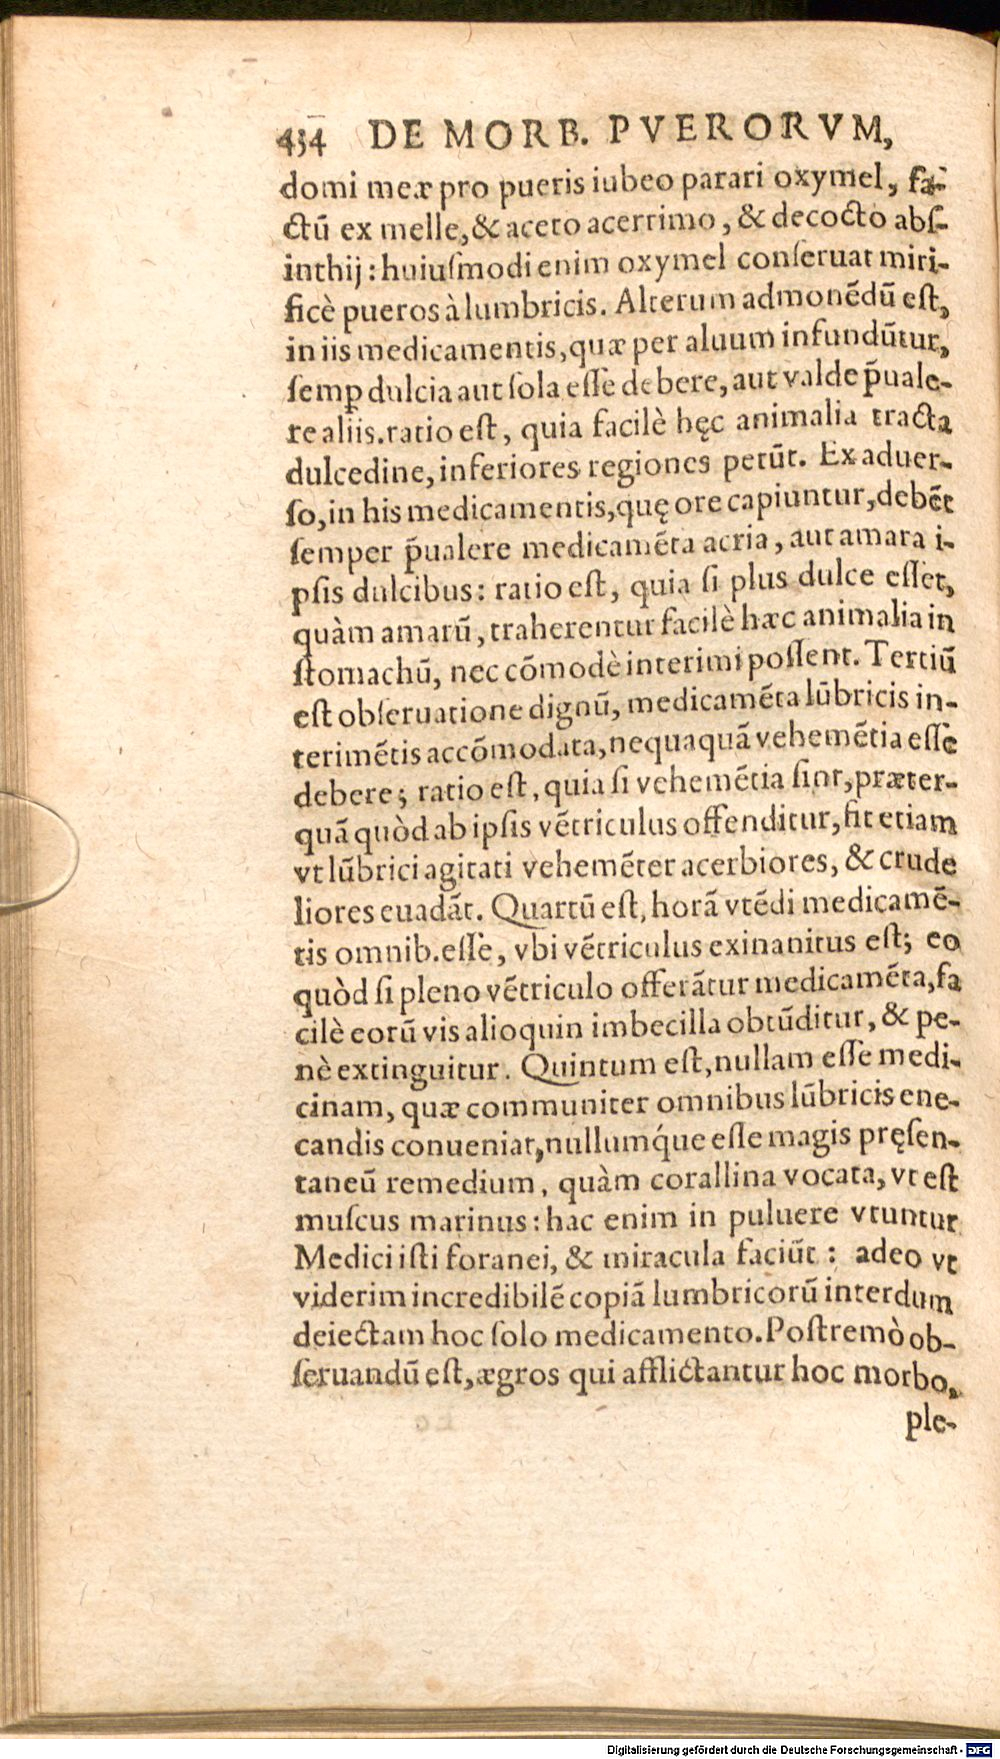 434 DE MORB. PVERORVM,
domi meæ pro pueris iubeo parari oxymel, fa-
ctũ ex melle, & aceto acerrimo, & decocto abſ-
inthij: huiuſmodi enim oxymel conſeruat miri-
ficè pueros à lumbricis. Alterum admonẽdũ eſt,
in iis medicamentis, quæ per aluum infundũtur,
ſemꝑ dulcia aut ſola eſſe debere, aut valde p̃uale-
re aliis. ratio eſt, quia facilè hęc animalia tracta
dulcedine, inferiores regiones petũt. Ex aduer-
ſo, in his medicamentis, quę ore capiuntur, debẽt
ſemper p̃ualere medicamẽta acria, aut amara i-
pſis dulcibus: ratio eſt, quia ſi plus dulce eſſet,
quàm amarũ, traherentur facilè hæc animalia in
ſtomachũ, nec cõmodè interimi poſſent. Tertiũ
eſt obſeruatione dignũ, medicamẽta lũbricis in-
terimẽtis accõmodata, nequaquã vehemẽtia eſſe
debere; ratio eſt, quia ſi vehemẽtia ſint, præter-
quã quòd ab ipſis vẽtriculus offenditur, fit etiam
vt lũbrici agitati vehemẽter acerbiores, & crude
liores euadãt. Quartũ eſt, horã vtẽdi medicamẽ-
tis omnib. eſſe, vbi vẽtriculus exinanitus eſt; eo
quòd ſi pleno vẽtriculo offerãtur medicamẽta, fa
cilè eorũ vis alioquin imbecilla obtũditur, & pe-
nè extinguitur. Quintum eſt, nullam eſſe medi-
cinam, quæ communiter omnibus lũbricis ene-
candis conueniat, nullumq́ue eſſe magis pręſen-
taneũ remedium, quàm corallina vocata, vt eſt
muſcus marinus: hac enim in puluere vtuntur
Medici iſti foranei, & miracula faciũt: adeo vt
viderim incredibilẽ copiã lumbricorũ interdum
deiectam hoc ſolo medicamento. Poſtremò ob-
ſeruandũ eſt, ægros qui afflictantur hoc morbo,
ple-
Digitalisierung gefördert durch die Deutsche Forschungsgemeinschaft - DFG